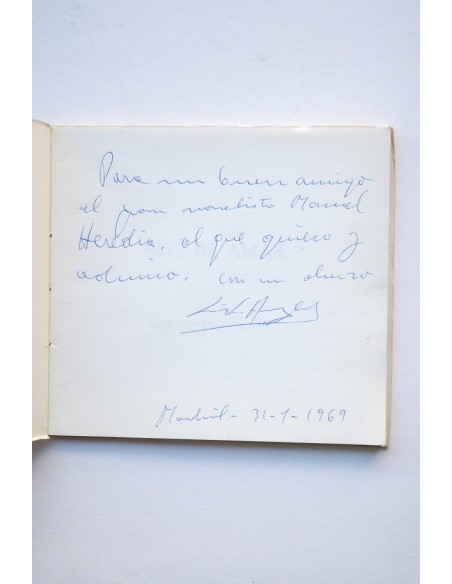 Para mi buen amigo
el gran novelista Manuel
Heredia, al que quiero y
admiro, con un abrazo
Madrid - 31-1-1969